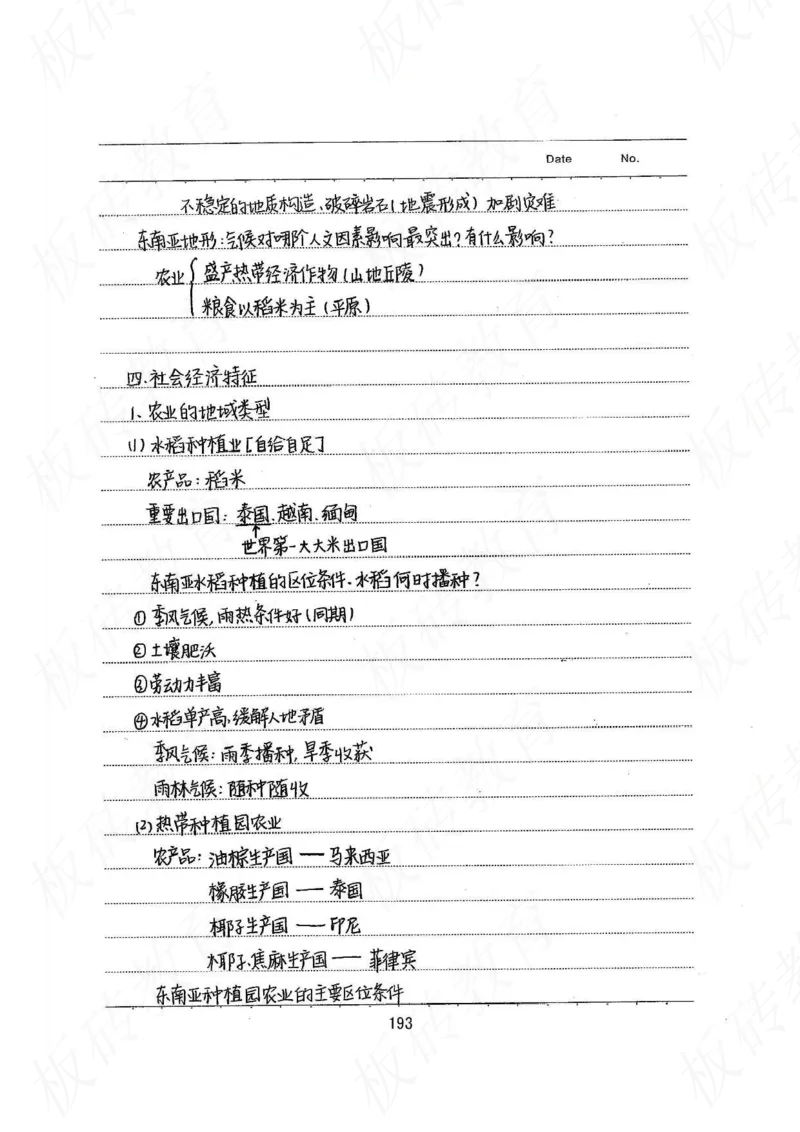 Date No.
不稳定的地质构造、破碎岩石(地震形成)加剧灾难
东南亚地形:气候对哪个人文因素影响最突出?有什么影响?
农业{盛产热带经济作物(山地丘陵)
粮食以稻米为主(平原)
四.社会经济特征
1、农业的地域类型
(1)水稻种植业[自给自足]
农产品:稻米
重要出口国:泰国、越南、缅甸
↑
世界第一大大米出口国
东南亚水稻种植的区位条件、水稻何时播种?
①季风气候,雨热条件好(同期)
②土壤肥沃
③劳动力丰富
④水稻单产高,缓解人地矛盾
季风气候:雨季播种,旱季收获
雨林气候:随种随收
(2)热带种植园农业
农产品:油棕生产国——马来西亚
橡胶生产国——泰国
椰子生产国——印尼
椰子、蕉麻生产国——菲律宾
东南亚种植园农业的主要区位条件
193
板砖教育